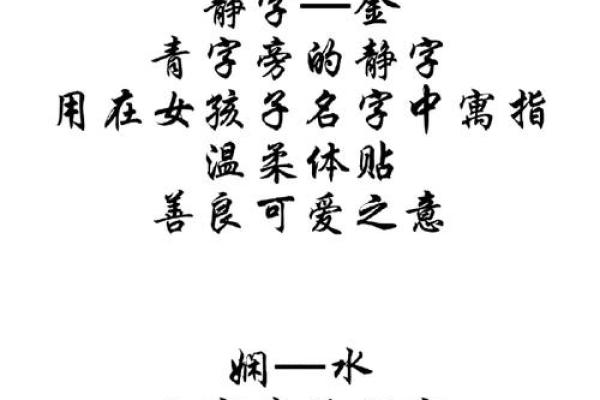 静字—金
青字旁的静字
用在女孩子名字中寓指
温柔体贴
善良可爱之意
娴—水